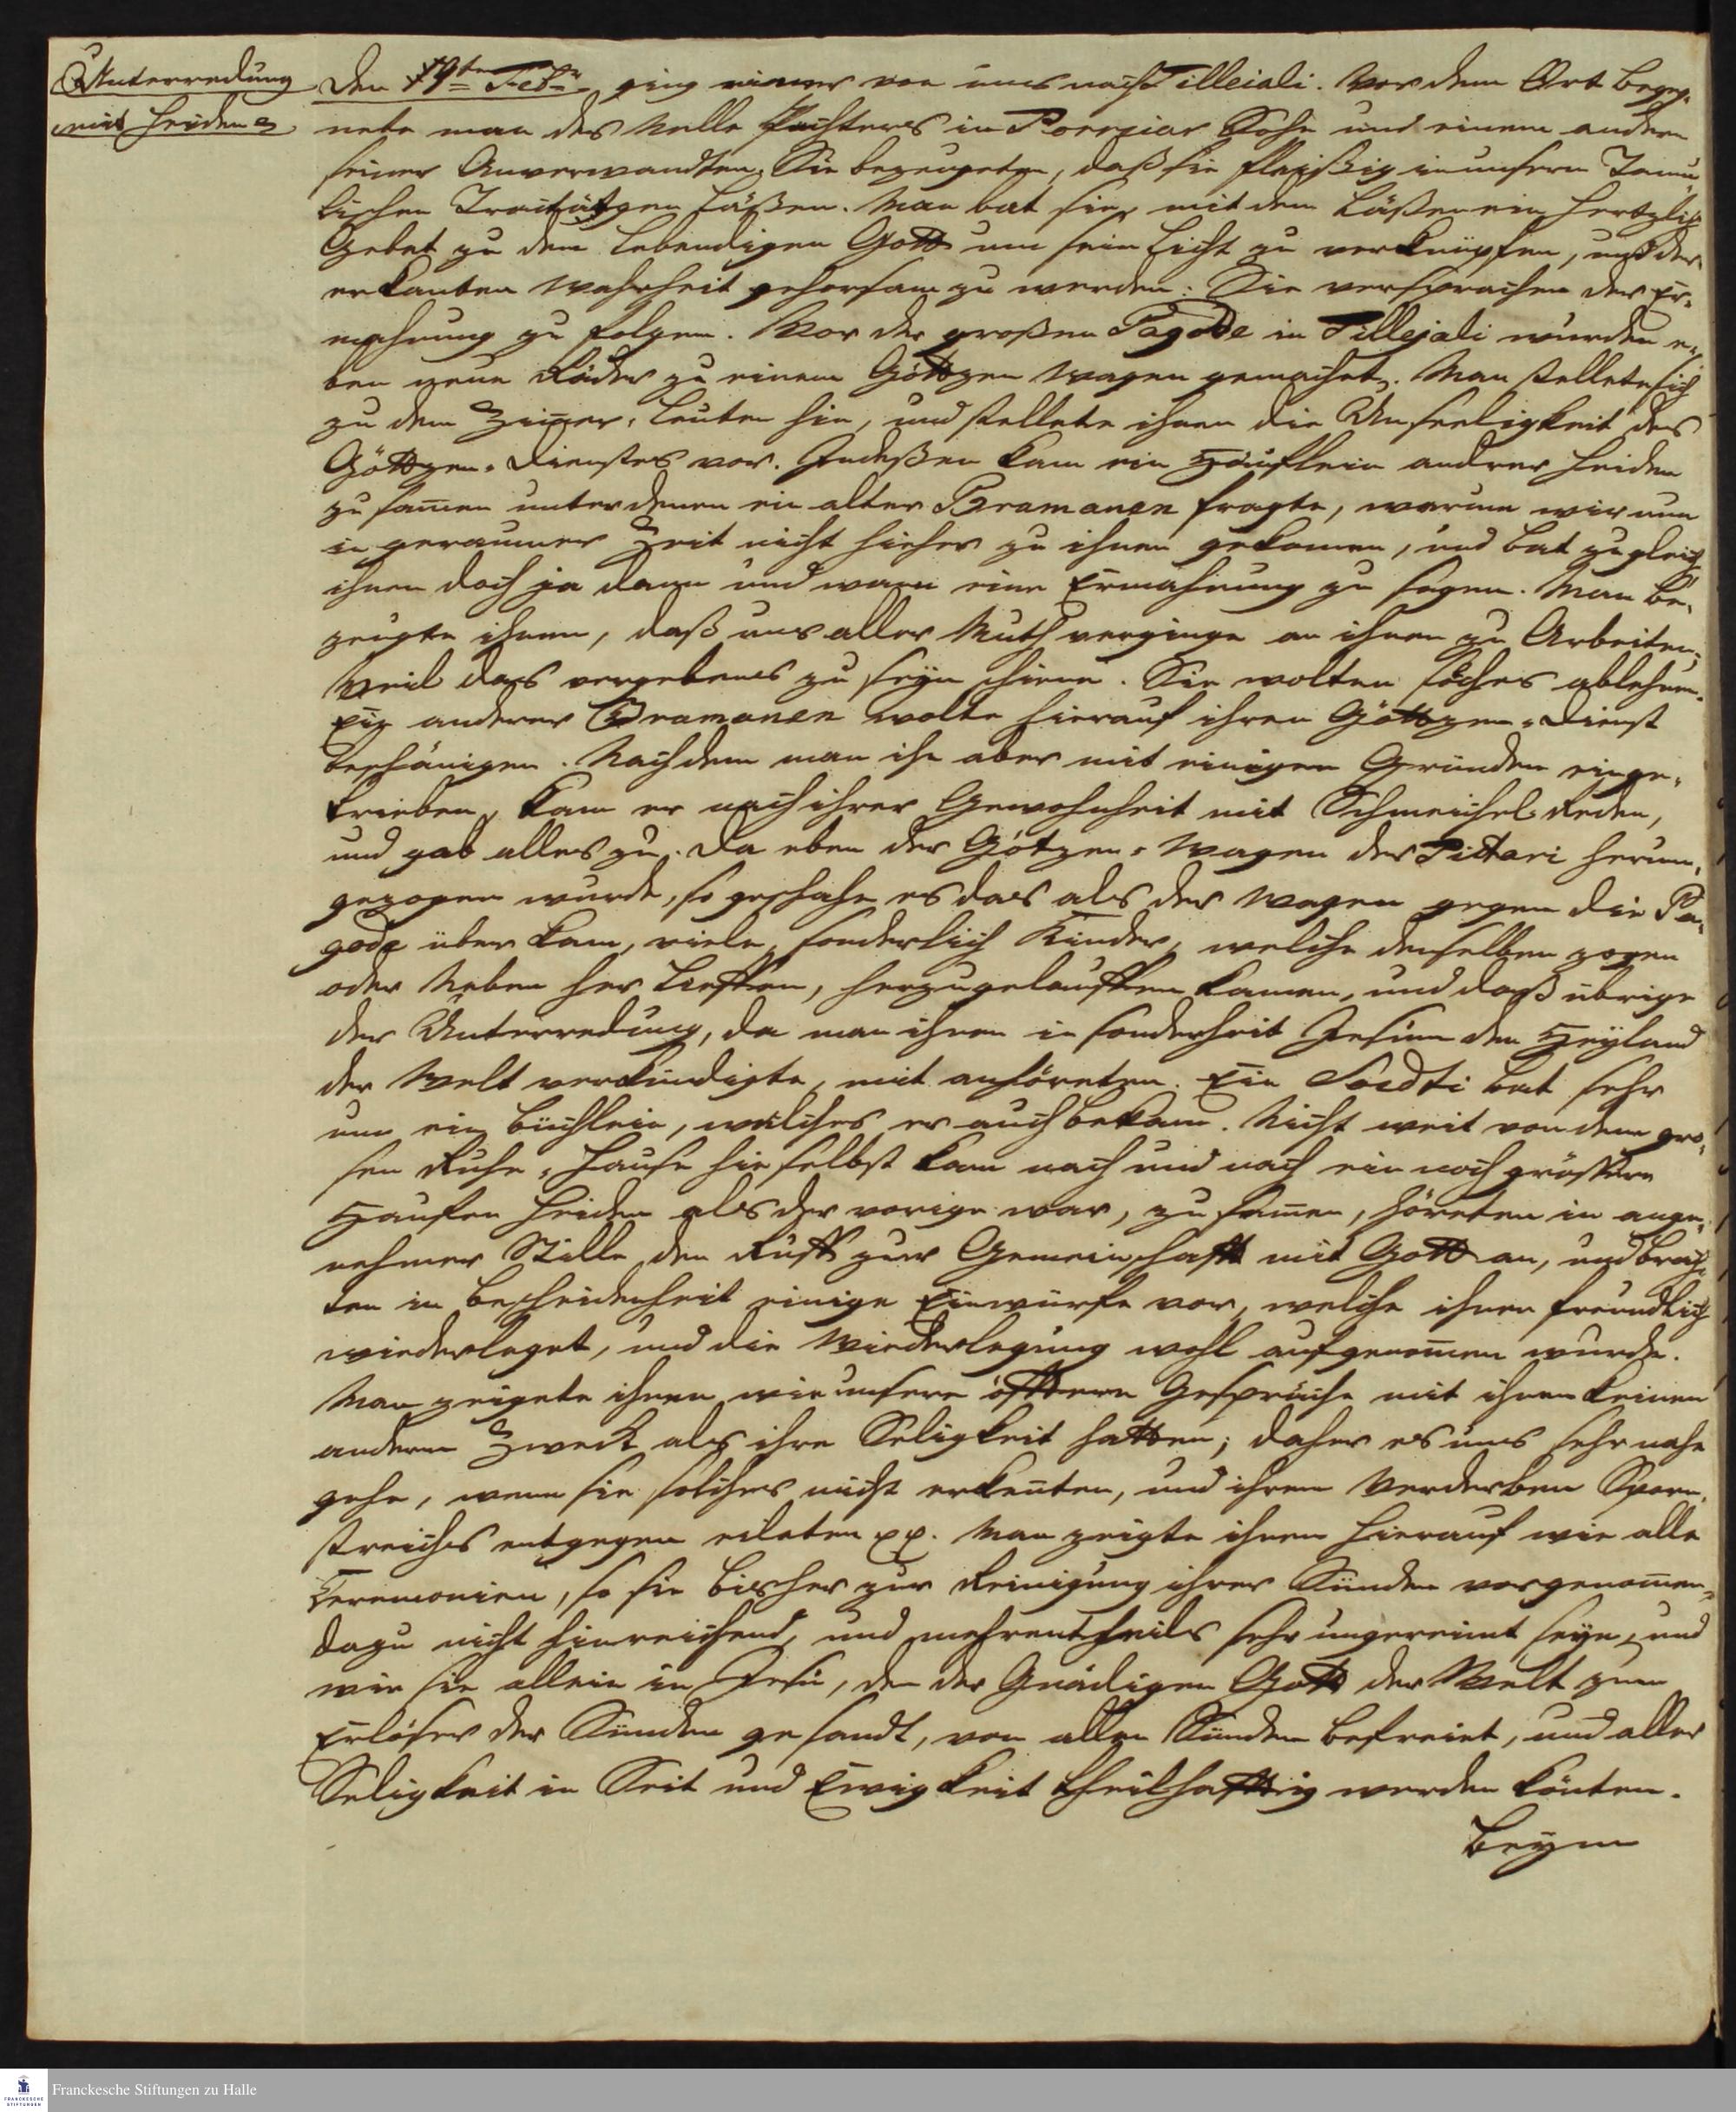 Unterredung
mit Heiden
Den 19ten Febr. ging einer von uns nach Tilleiali. Vor dem Ort begeg-
nete man des Nelle Pachters in Poreiar Sohn und einem andern
seiner Anverwandten. Sie bezeugeten, daß sie fleißig in unsern Tamu-
lischen Tractätgen läßen. Man bat sie, mit dem Läßen ein hertzlich
Gebet zu dem lebendigen Gott um sein Licht zu verknüpfen, und der
erkanten Wahrheit gehorsam zu werden: Sie versprachen der Er-
mahnung zu folgen. Vor der großen Pagode in Tillejali wurden e-
ben neue Räder zu einem Göttzen Wagen gemachet. Man stellete sich
zu dem Zimer-Leuten hin, und stellete ihnen die Unseeligkeit des
Göttzen-Dienstes vor. Indeßen kam ein Häuflein andrer Heiden
zusamen unter denen ein alter Bramanen fragte, warum wir nun
in geraumer Zeit nicht hieher zu ihnen gekomen, und bat zugleich
ihnen doch ja dann und wann eine Ermahnung zu sagen. Man be-
zeugte ihnen, daß uns aller Muth verginge an ihnen zu Arbeiten,
weil das vergebens zu seyn schiene. Sie wolten solches ablehnen.
Ein anderer Bramanen wolte hierauf ihren Göttzen-Dienst
beschönigen. Nachdem man ihn aber mit einigen Gründen einge-
trieben, kam er nach ihrer Gewohnheit mit Schmeichel-Reden,
und gab alles zu. Da eben der Götzen-Wagen der Pittari herum-
gezogen wurde, so geschahe es das als der Wagen gegen die Pa-
gode über kam, viele, sonderlich Kinder, welche denselben zogen
oder Neben her lieffen, herzugelauffen kamen, und daß übrige
der Unterredung, da man ihnen in sonderheit Jesum den Heyland
der Welt verkündigte, mit anhöreten. Ein Soedti bat sehr
um ein Büchlein, welches er auch bekam. Nicht weit von dem gro-
sen Ruhe-Hause hieselbst kam nach und nach ein noch grössere
Haufen Heiden als der vorige war, zu samen, höreten in ange-
nehmer Stille den Ruff zur Gemeinschafft mit Gott an, und brach-
ten in Bescheidenheit einige Einwürfe vor, welche ihnen freundlich
wiederleget, und die Wiederlegung wohl aufgenomen wurde.
Man zeigete ihnen wie unsere öfftern Gespräche mit ihnen keinen
andern Zweck als ihre Seligkeit hatten; daher es uns sehr nahe
gehe, wenn sie solches nicht erkenten, und ihrem Verderben Sporn-
streichs entgegen eileten pp. Man zeigte ihnen hierauf wie alle
Ceremonien, so sie bisher zur Reinigung ihrer Sünden vorgenomen,
dazu nicht hinreichend, und mehrentheils sehr ungereimt seyn, und
wie sie allein in Jesu, den der Gnädigen Gott der Welt zum
Erlöser der Sünden gesandt, von allen Sünden befreiet, und aller
Seligkeit in Zeit und Ewigkeit theilhafftig werden könten.
Beym
Franckesche Stiftungen zu Halle
FRANCKESCHE
STIFTUNGEN